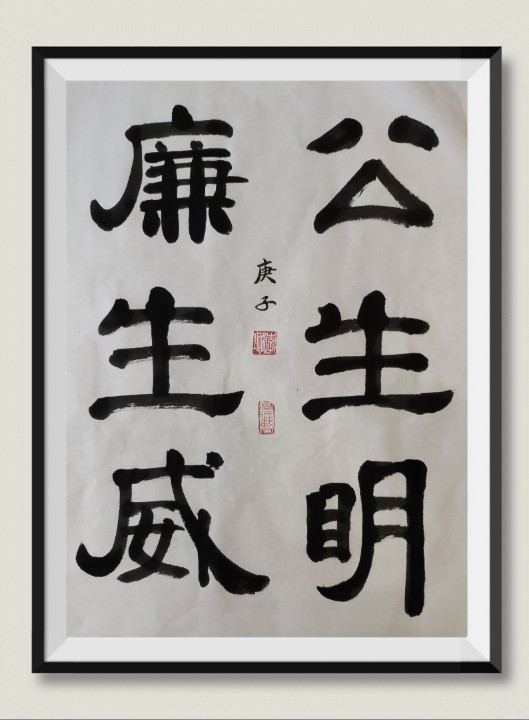 公生明
廉生威
庚子